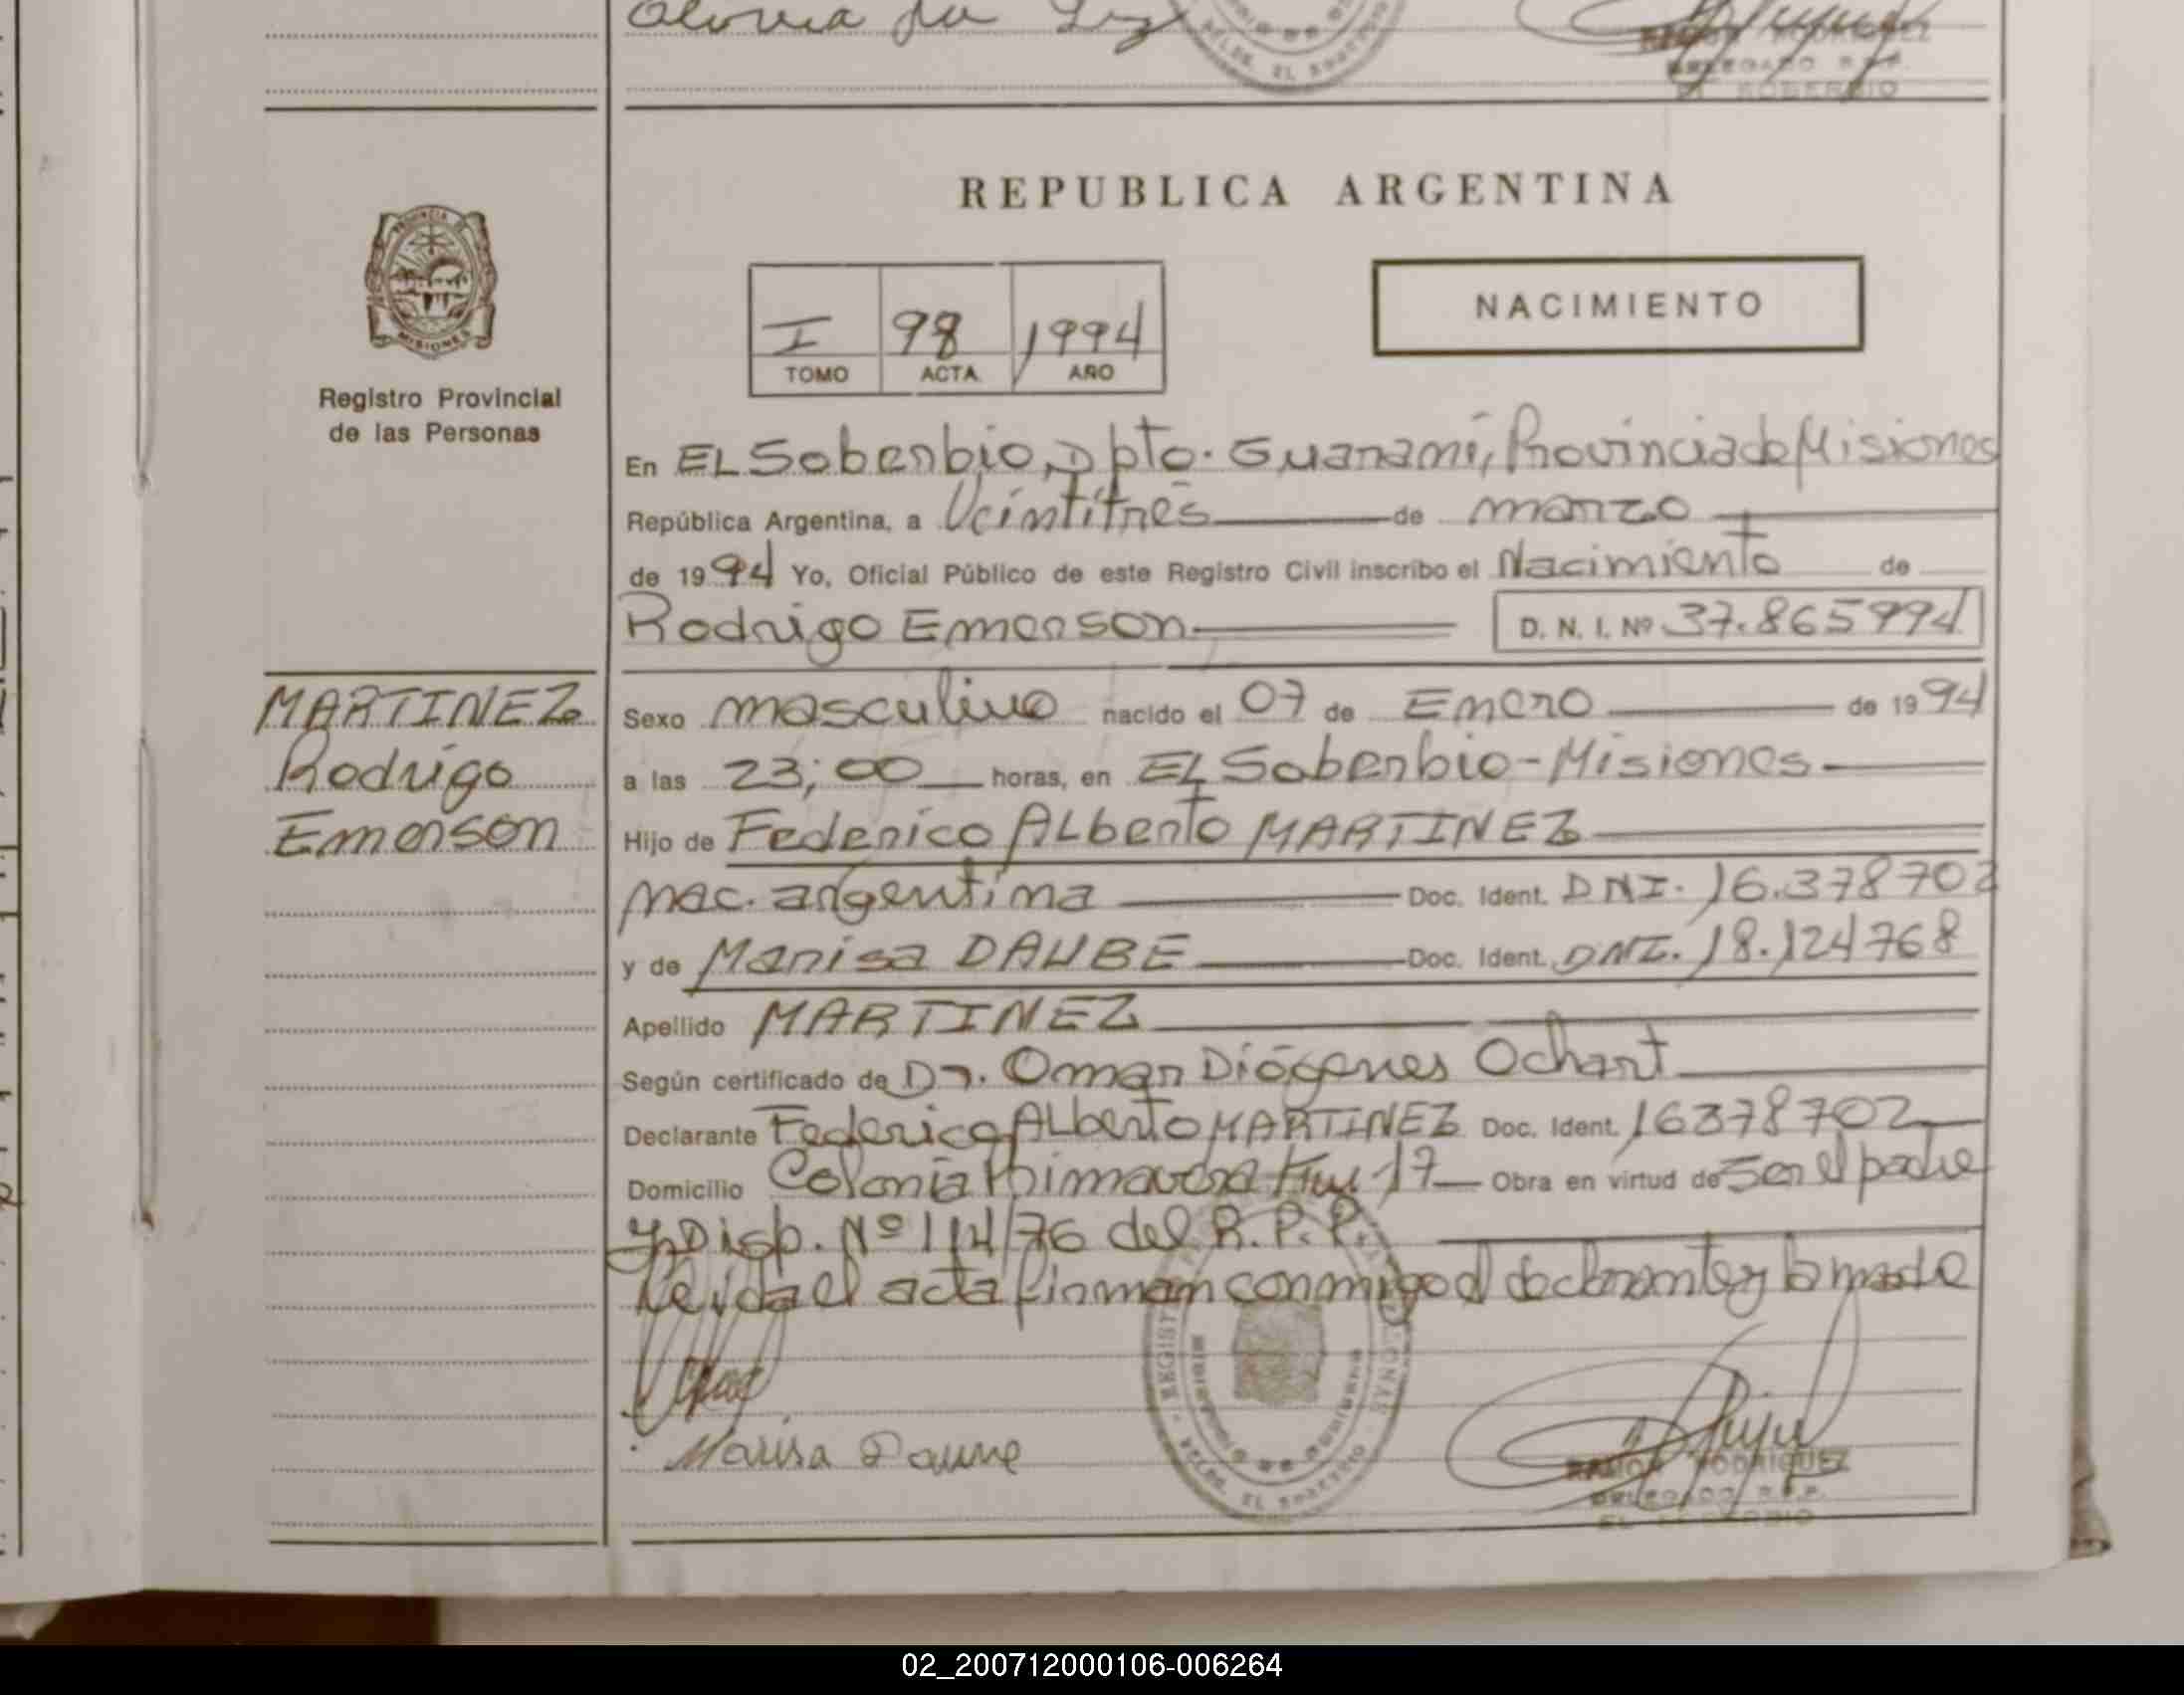 REPUBLICA ARGENTINA
PROVINCIA
MISIONES
Registro Provincial
de las Personas
I 98 1994
TOMO ACTA AÑO
NACIMIENTO
En EL Soberbio, Dpto. Guaraní, Provincia de Misiones
República Argentina, a Veintitrés de marzo
de 1994 Yo, Oficial Público de este Registro Civil inscribo el Nacimiento de
Rodrigo Emerson D. N. I. Nº 37.865994
MARTINEZ
Rodrigo
Emerson
Sexo masculino nacido el 07 de Enero de 1994
a las 23;00 horas, en EL Soberbio-Misiones
Hijo de Federico ALberto MARTINEZ
nac. argentina Doc. Ident. DNI. 16.378702
y de Marisa DAUBE Doc. Ident. DNI. 18.124768
Apellido MARTINEZ
Según certificado de Dr. Omar Diógenes Ochart
Declarante Federico ALberto MARTINEZ Doc. Ident. 16378702
Domicilio Colonia Primavera Km 17 Obra en virtud de Ser el padre
y Disp. Nº 114/76 del R. P. P.
Leida el acta firman conmigo el declarante y la madre
Marisa Daune
RAMON RODRIGUEZ
DELEGADO R.P.P.
EL SOBERBIO
02_200712000106-006264